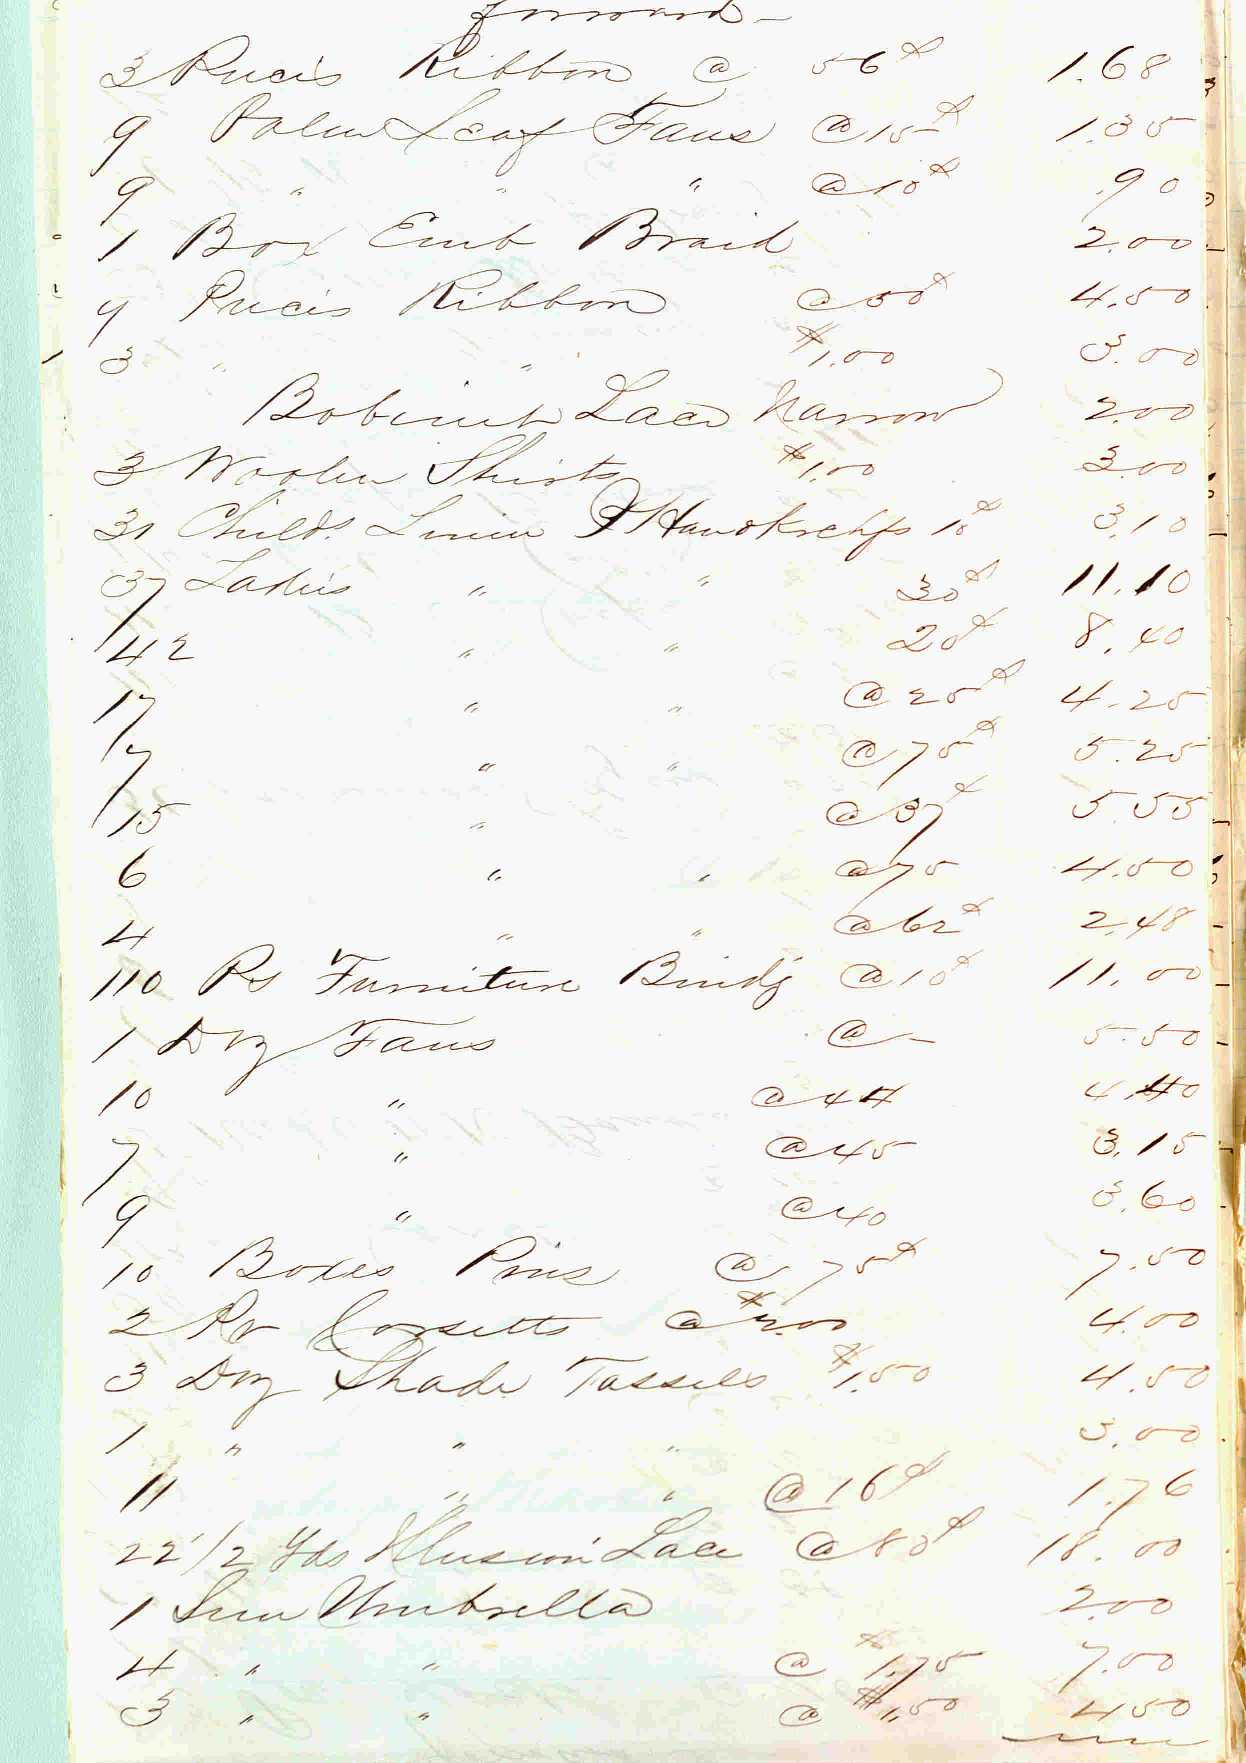 forward -
3 Pieces Ribbon @ 56¢ 1.68
9 Palm Leaf Fans @ 15¢ 1.35
9 " " " @ 10¢ .90
1 Box Emb Braid 2.00
9 Pieces Ribbon @ 50¢ 4.50
3 " " $1.00 3.00
Bobinet Lace Narrow 2.00
3 Woolen Shirts $1.00 3.00
31 Childs Linen Handkrchfs 10¢ 3.10
37 Ladies " " 30¢ 11.10
42 " " 20¢ 8.40
17 " " @ 25¢ 4.25
7 " " @ 75¢ 5.25
15 " @ 37¢ 5.55
6 " " @ 75 4.50
4 " " @ 62¢ 2.48
110 Ps Furniture Bindg @ 10¢ 11.00
1 Doz Fans @ - 5.50
10 " @ 44 4.40
7 " @ 45 3.15
9 " @ 40 3.60
10 Boxes Pins @ 75¢ 7.50
2 Pr Corsetts @ $2.00 4.00
3 Doz Shade Tassels $1.50 4.50
1 " " " 3.00
11 " " @ 16¢ 1.76
22 1/2 Yds Illusion Lace @ 80¢ 18.00
1 Sun Umbrella 2.00
4 " " @ $1.75 7.00
3 " " @ $1.50 4.50